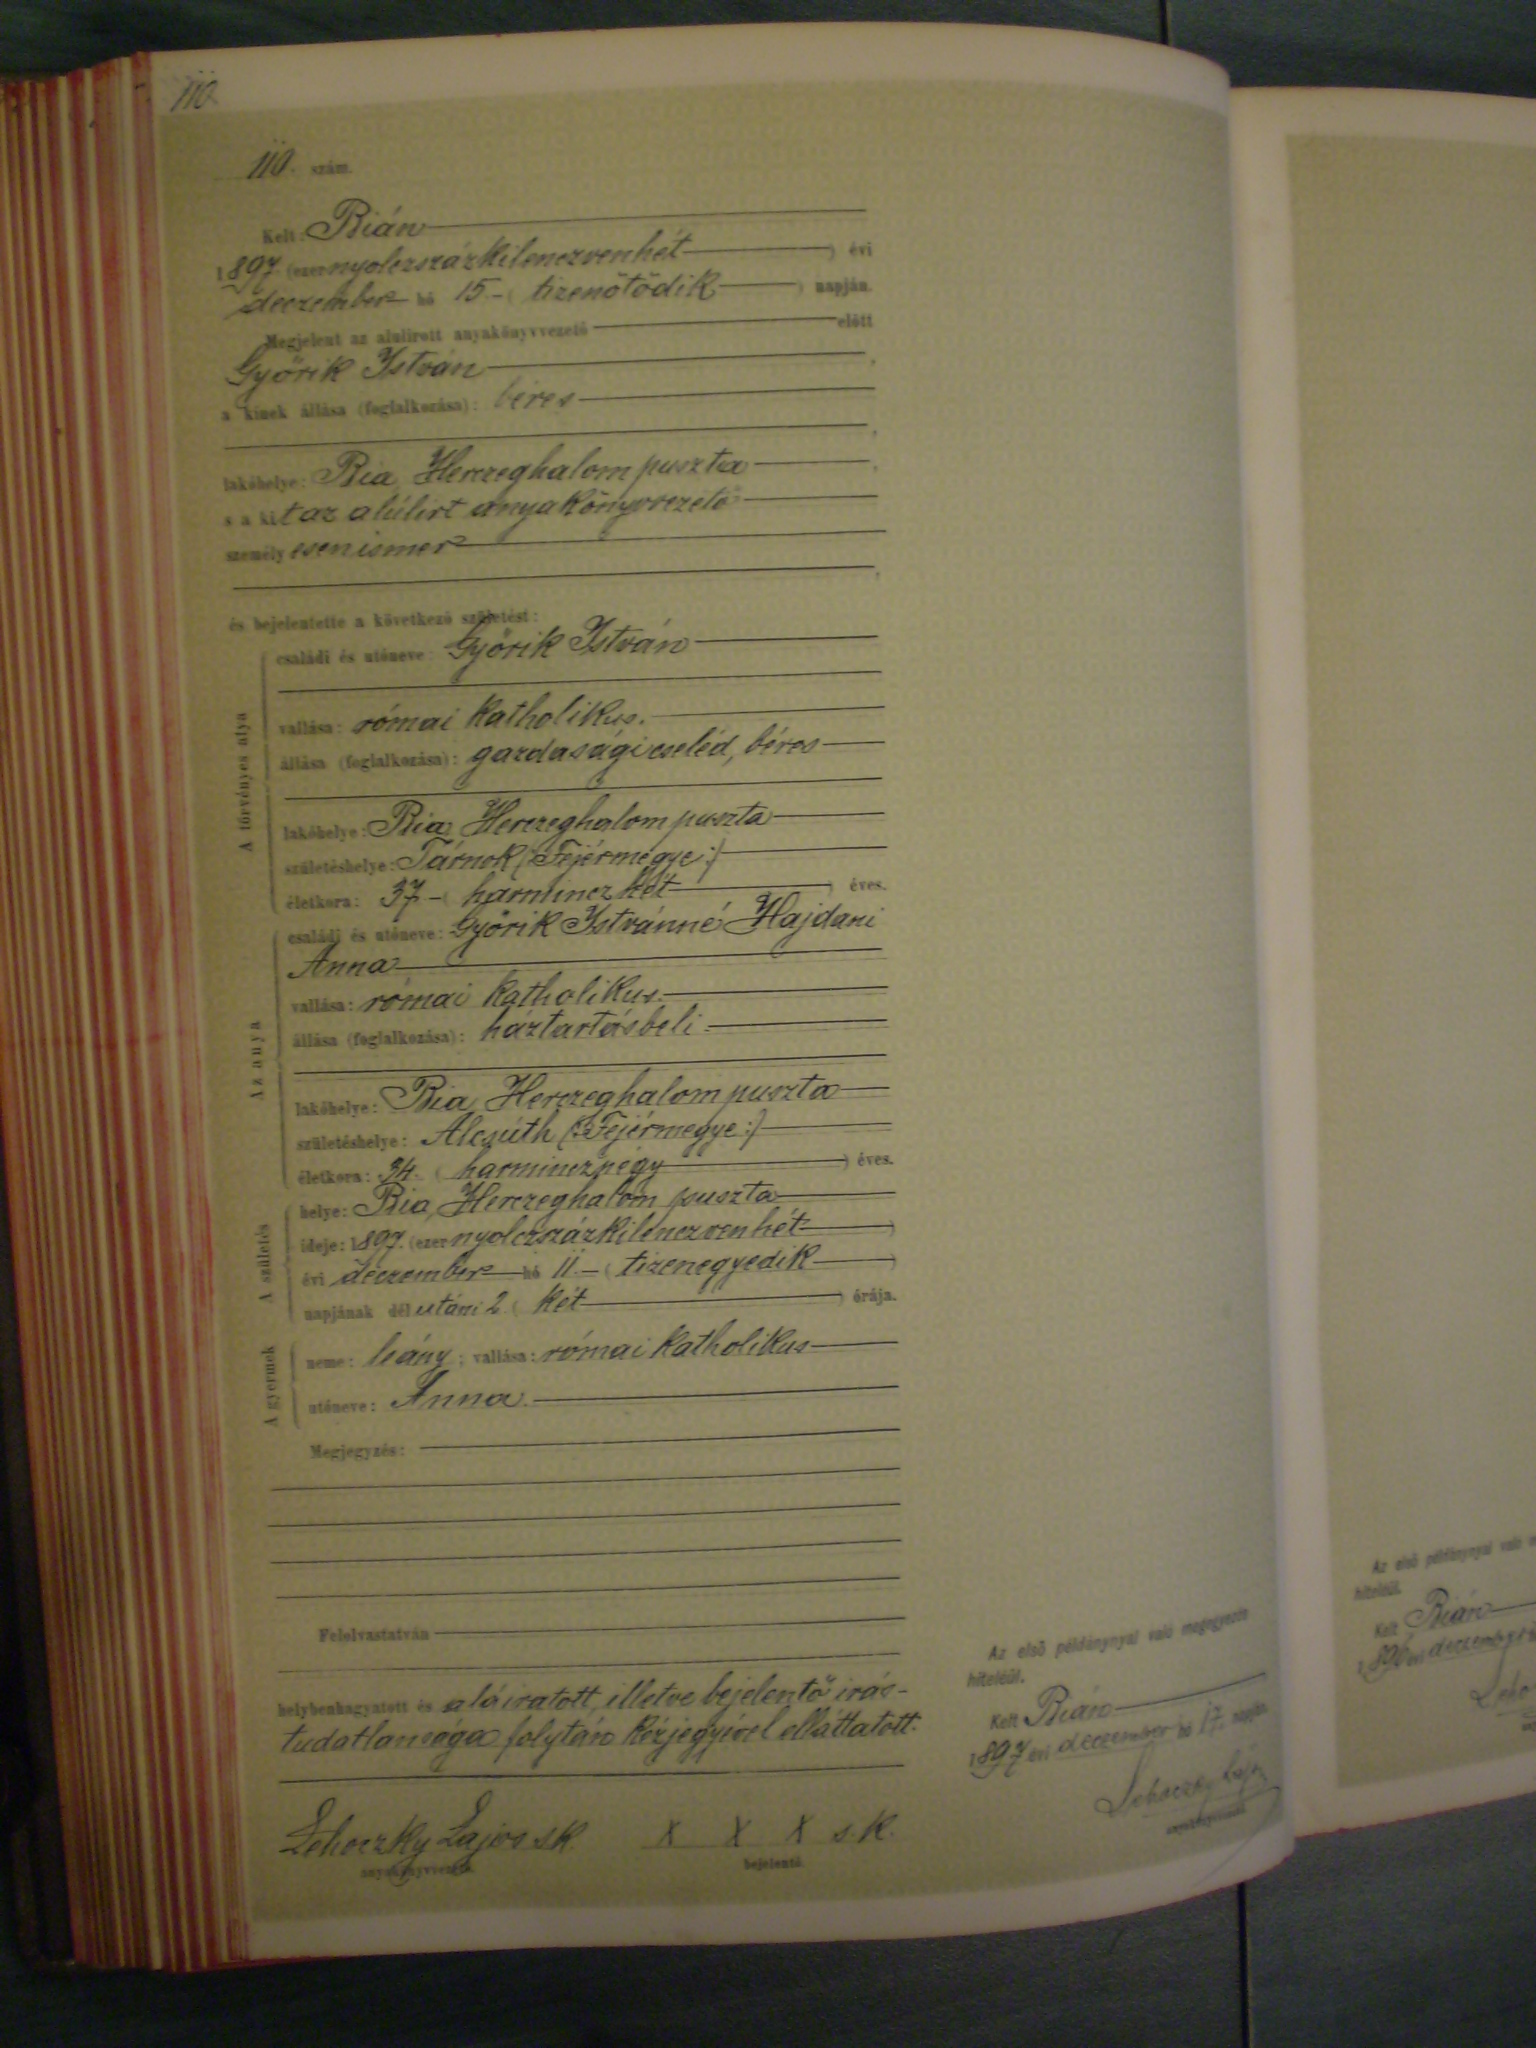 110
110. szám.
Kelt: Bián
1897. (ezernyolczszázkilenczvenhét) évi
deczember hó 15. (tizenötödik) napján.
Megjelent az alulirott anyakönyvvezető előtt
Győrik István,
a kinek állása (foglalkozása): béres
,
lakóhelye: Bia, Herczeghalom puszta,
s a kit az alúlirt anyakönyvvezető
személyesen ismer
,
és bejelentette a következő születést:
A törvényes atya
családi és utóneve: Győrik István
vallása: római katholikus.
állása (foglalkozása): gazdasági cseléd, béres
lakóhelye: Bia, Herczeghalom puszta
születéshelye: Tárnok (:Fejérmegye:)
életkora: 37 (harmincz hét) éves.
Az anya
családi és utóneve: Győrik Istvánné Hajdani
Anna
vallása: római katholikus.
állása (foglalkozása): háztartásbeli
lakóhelye: Bia, Herczeghalom puszta
születéshelye: Alcsúth (:Fejérmegye:)
életkora: 34. (harmincznégy) éves.
A születés
helye: Bia, Herczeghalom puszta
ideje: 1897. (ezernyolczszázkilenczvenhét)
évi deczember hó 11. (tizenegyedik)
napjának délutáni 2 (két) órája.
A gyermek
neme: leány; vallása: római katholikus
utóneve: Anna.
Megjegyzés:
Felolvastatván
helybenhagyatott és aláiratott, illetve bejelentő irás-
tudatlansága folytán kézjegyével elláttatott.
Lehoczky Lajos sk. X X X s.k.
anyakönyvvezető. bejelentő.
Az első példánynyal való megegyezés
hiteléül.
Kelt Bián
1897 évi deczember hó 17. napján.
Lehoczky Lajos
anyakönyvvezető
Az első példánynyal való
hiteléül.
Kelt Bián
évi deczember